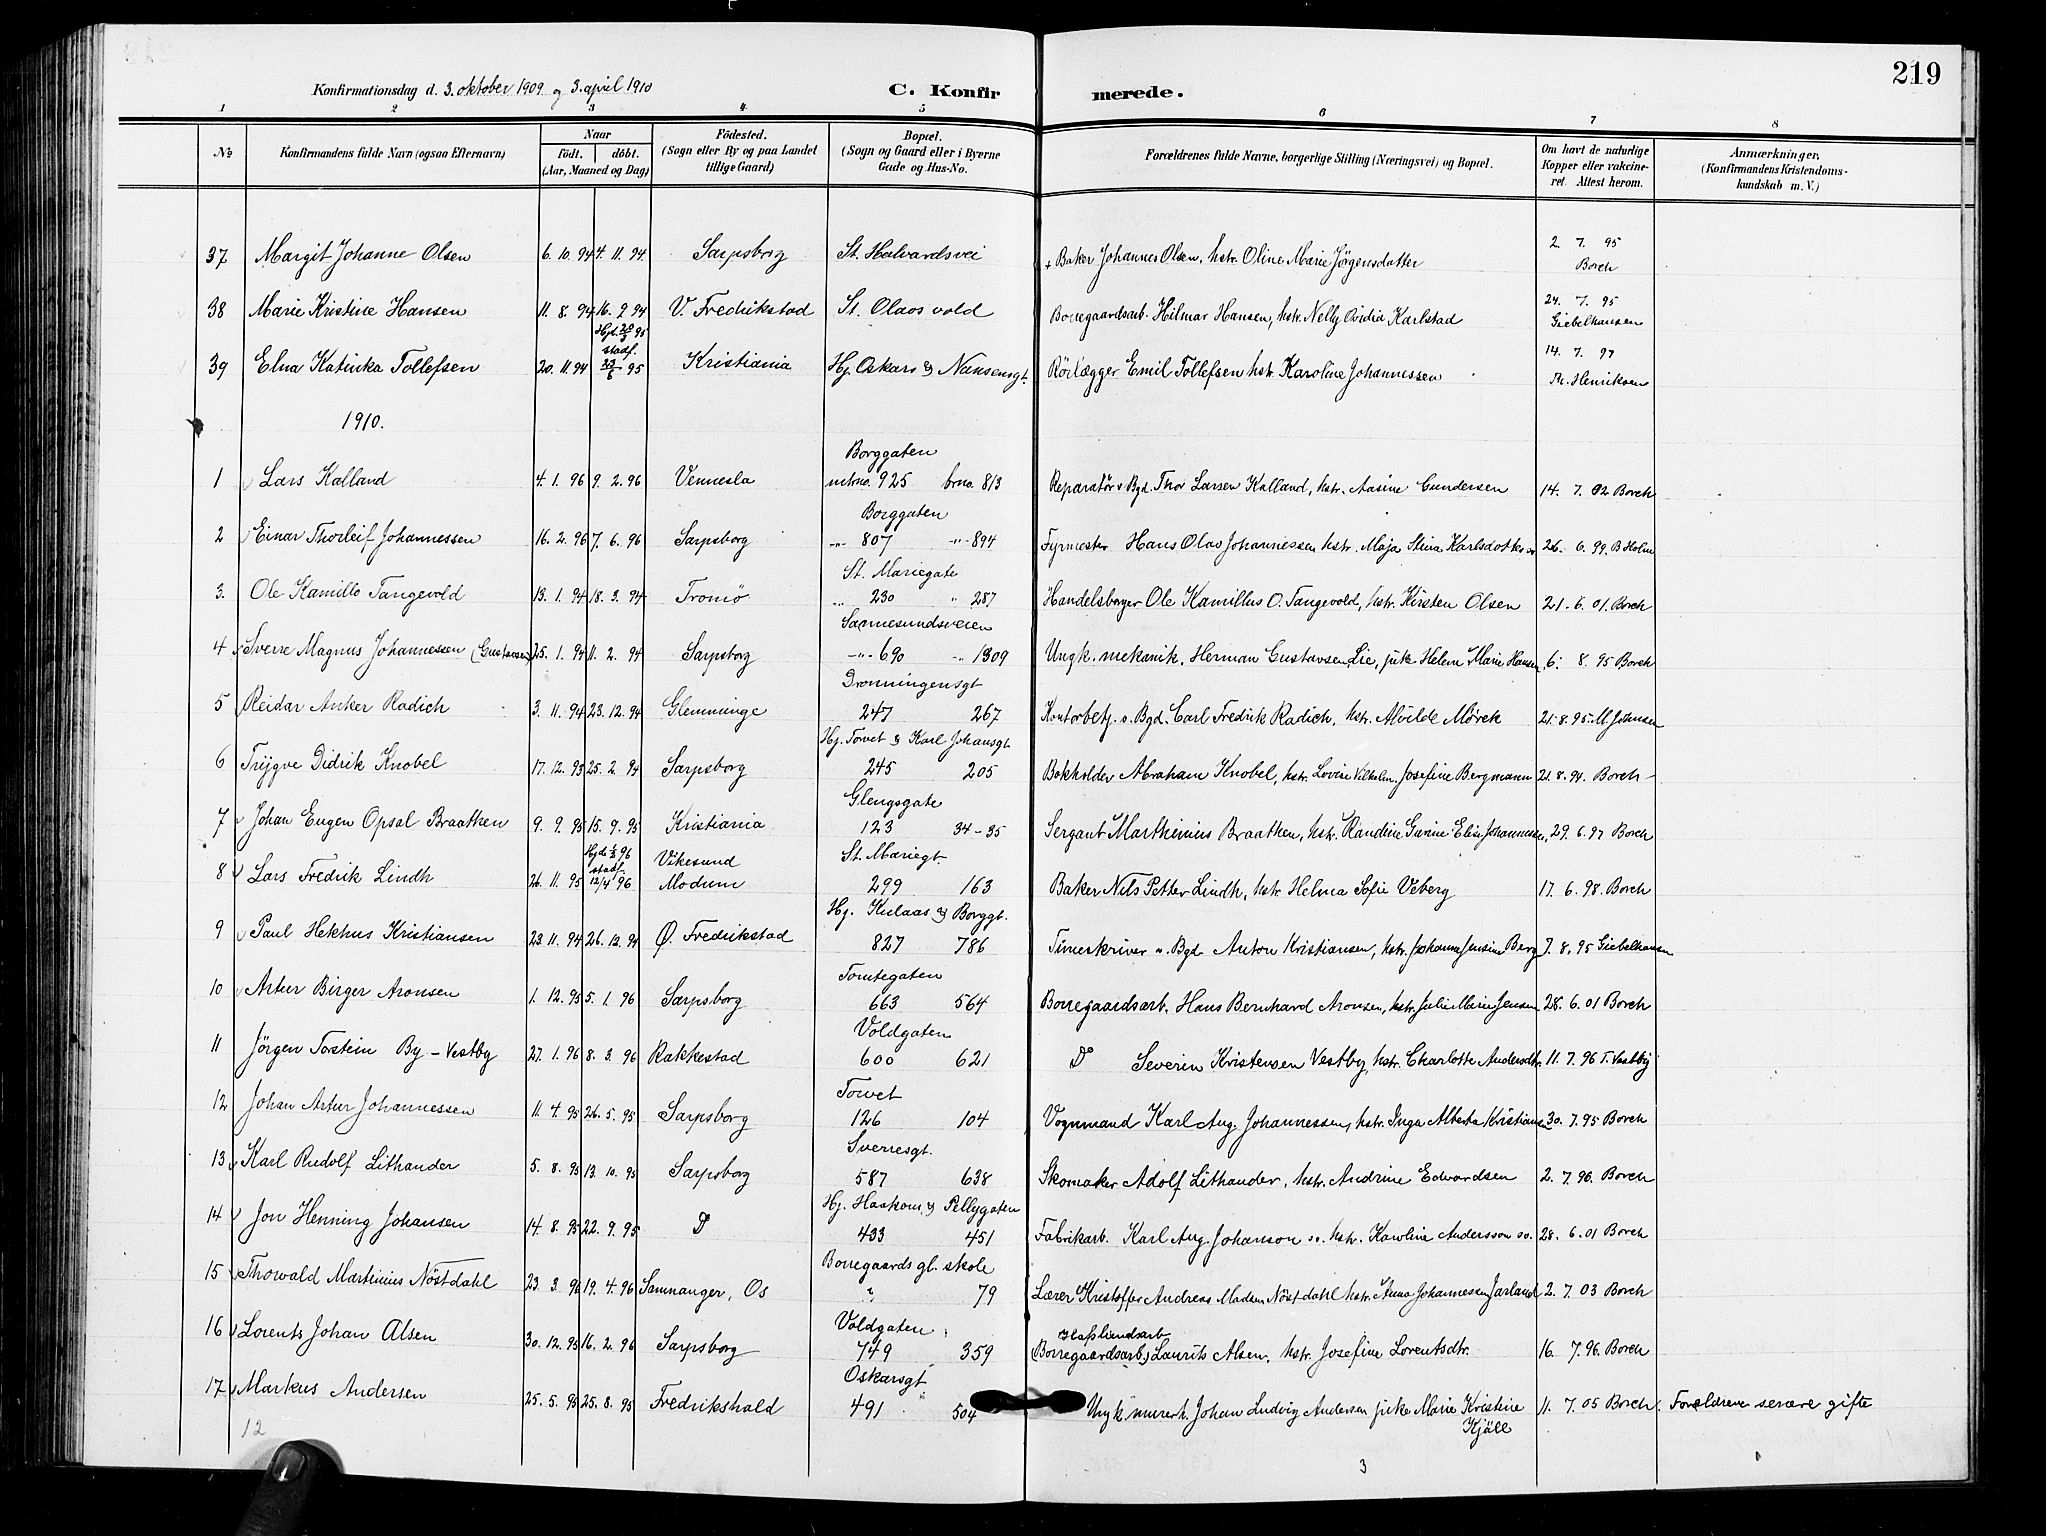 219
Konfirmationsdag d. 3. oktober 1909 og 3. april 1910 C. Konfir merede.
1 2 3 4 5 6 7 8
No Konfirmandens fulde Navn (ogsaa Efternavn) Naar födt. döbt. (Aar, Maaned og Dag) Födested. (Sogn eller By og paa Landet tillige Gaard) Bopæl. (Sogn og Gaard eller i Byerne Gade og Hus-No. Forældrenes fulde Navne, borgerlige Stilling (Næringsvei) og Bopæl. Om havt de naturlige Kopper eller vakcineret. Attest herom. Anmærkninger, (Konfirmandens Kristendomskundskab m. V.)
37 Margit Johanne Olsen 6. 10. 94 4. 11. 94 Sarpsborg St. Halvardsvei + Baker Johannes Olsen, hstr. Oline Marie Jörgensdatter 2. 7. 95 Borch
38 Marie Kristine Hansen 11. 8. 94 16. 9. 94 V. Fredrikstad St. Olavs vold Borregaardsarb. Hilmar Hansen, hstr. Nelly Ovidia Karlstad 24. 7. 95 Giebelhausen
39 Elna Katinka Tollefsen 20. 11. 94 Hjd. 20/3 95 stadf. 23/6 95 Kristiania Hj. Oskars & Nansensgt. Rörlægger Emil Tollefsen hstr. Karoline Johannessen 14. 7. 97 Th. Henriksen
1910.
1 Lars Kalland 4. 1. 96 9. 2. 96 Vennesla Borggaten mtrno. 925 brno. 813 Reparatör v. Bgd. Thor Larsen Kalland, hstr. Aasine Gundersen 14. 7. 02 Borch
2 Einar Thorleif Johannessen 16. 2. 96 7. 6. 96 Sarpsborg Borggaten -"- 807 -"- 894 Fyrmester Hans Olav Johannessen hstr. Maja Stina Karlsdotter 26. 6. 99. B Holm
3. Ole Kamillo Tangevold 13. 1. 94 18. 3. 94 Tromö St. Mariegate " 230 " 287 Handelsborger Ole Kamillus O. Tangevold, hstr. Kirsten Olsen 21. 6. 01. Borch
4 Sverre Magnus Johannessen (Gustavsen) 25. 1. 94 11. 2. 94 Sarpsborg Sannesundsveien -"- 690 -"- 1309 Ungk. mekanik. Herman Gustavsen Lie, pike Helene Marie Hansen 6. 8. 95 Borch
5 Reidar Anker Radich 3. 11. 94 23. 12. 94 Glemminge Dronningensgt 247 267 Kontorbetj. v. Bgd. Carl Fredrik Radich, hstr. Alvilde Mörck 21. 8. 95. M Johnsen
6 Trygve Didrik Knobel 17. 12. 93 25. 2. 94 Sarpsborg Hj. Torvet & Karl Johansgt 245 205 Bokholder Abraham Knobel, hstr. Lovise Vilhelm. Josefine Bergmann 21. 8. 94. Borch
7 Johan Eugen Opsal Braathen 9. 9. 95 15. 9. 95 Kristiania Glengsgate 123 34-35 Sergant Marthinius Braathen, hstr. Randine Gurine Elise Johannessen 29. 6. 97 Borch
8 Lars Fredrik Lindh 26. 11. 95 stadf. 12/4 96 Vikesund Modum St. Mariegt. 299 163 Baker Nils Petter Lindh, hstr. Helma Sofie Veberg 17. 6. 98. Borch
9 Paul Hekhus Kristiansen 23. 11. 94 26. 12. 94 Ø. Fredrikstad Hj. Kulaas & Borggt. 827 786 Timeskriver v. Bgd Anton Kristiansen, hstr. Johanne Jensine Berg 7. 8. 95 Giebelhausen
10 Artur Birger Aronsen 1. 12. 95 5. 1. 96 Sarpsborg Tomtegaten 663 564 Borregaardsarb. Hans Bernhard Aronsen, hstr. Julie Marie Jensen 28. 6. 01 Borch
11 Jörgen Torstein By-Vestby 27. 1. 96 8. 3. 96 Rakkestad Voldgaten 600 621 Do Severin Kristensen Vestby, hstr. Charlotte Andersdtr. 11. 7. 96 T. Vestby
12 Johan Artur Johannessen 11. 4. 95 26. 5. 95 Sarpsborg Torvet 126 104 Vognmand Karl Aug. Johannessen, hstr. Inga Alberta Kristiansen 30. 7. 95 Borch
13 Karl Rudolf Lithander 5. 8. 95 13. 10. 95 Sarpsborg Sverresgt. 587 638 Skomaker Adolf Lithander, hstr. Andrine Edwardsen 2. 7. 96. Borch
14 Jon Henning Johansen 14. 8. 95 22. 9. 95 Do Hj. Haakons & Pellygaten 433 451 Fabrikarb. Karl Aug. Johanson sv. hstr. Karoline Andersson sv. 28. 6. 01 Borch
15 Thorvald Martinius Nöstdahl 23. 3. 96 19. 4. 96 Samnanger, Os Borregaards gl. skole " 79 Lærer Kristoffer Andreas Madsen Nöstdahl hstr. Anna Johannesen Jarland 2. 7. 03 Borch
16 Lorents Johan Alsen 30. 12. 95 16. 2. 96 Sarpsborg Voldgaten 749 359 Hafslundsarb (Borregaardsarb.) Laurits Alsen, hstr. Josefine Lorentsdtr. 16. 7. 96. Borch
17 Markus Andersen 25. 5. 95 25. 8. 95 Fredrikshald Oskarsgt 491 504 Ungk. murerh. Johan Ludvig Andersen pike Marie Kristine Kjäll 11. 7. 05 Borch. Forældrene senere gifte
12
3